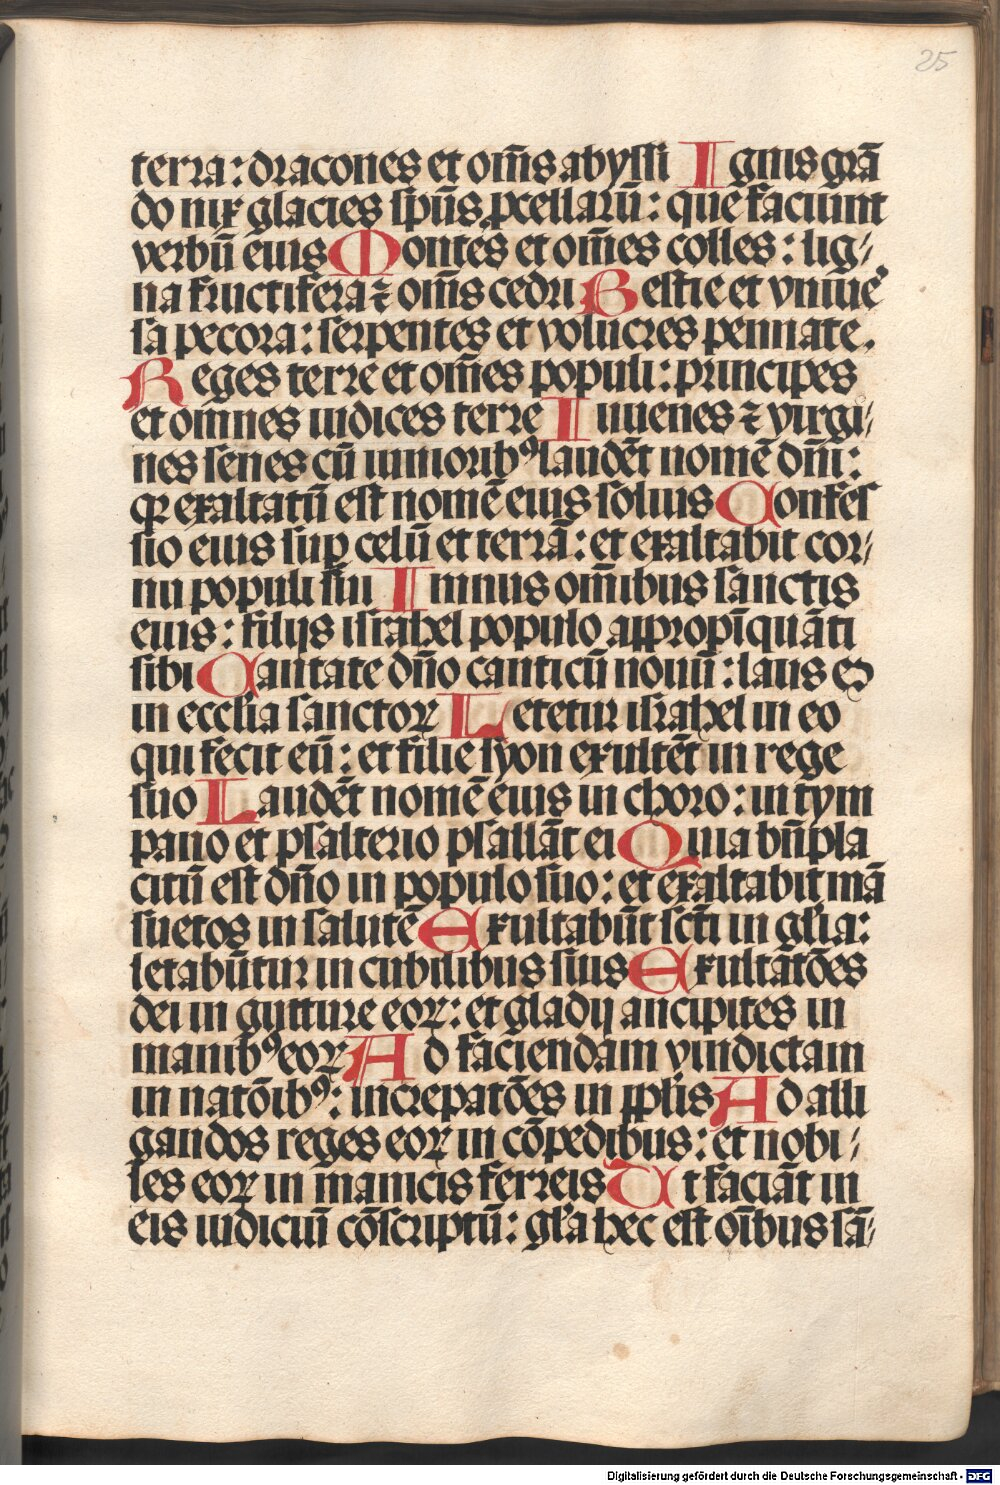 25
terra : dracones et om̄s abyssi Ignis grā
do nix glacies sp̄us ꝓcellarū : que faciunt
verbū eius Montes et om̄es colles : lig⸗
na fructifera ⁊ om̄s cedri Bestie et vniue͛
sa pecora : serpentes et volucres pennate .
Reges terre et om̄es populi : principes
et omnes iudices terre Iuuenes ⁊ virgi⸗
nes senes cū iunioribꝰ laudēt nomē dn̄i :
qꝛ exaltatū est nomē eius solius Confes
sio eius suꝑ celū et terrā : et exaltabit cor⸗
nu populi sui Imnus om̄ibus sanctis
eius : filijs israhel populo appropīquāti
sibi Cantate dn̄o canticū nouū : laus eꝰ
in eccl̄ia sanctoꝝ Letetur israhel in eo
qui fecit eū : et filie syon exultēt in rege
suo Laudēt nomē eius in choro : in tym
pano et psalterio psallāt ei Quia bn̄pla
citū est dn̄o in populo suo : et exaltabit mā
suetos in salutē Exultabūt sc̄ti in gl̄ia :
letabūtur in cubilibus suis Exultātōes
dei in gutture eoꝝ : et gladij ancipites in
manibꝰ eoꝝ Ad faciendam vindictam
in natōibꝰ : increpatōes in ppl̄is Ad alli
gandos reges eoꝝ in cōpedibus : et nobi⸗
les eoꝝ in manicis ferreis Ut faciāt in
eis iudiciū cōscriptū : gl̄a hec est oībus sā⸗
Digitalisierung gefördert durch die Deutsche Forschungsgemeinschaft - DFG